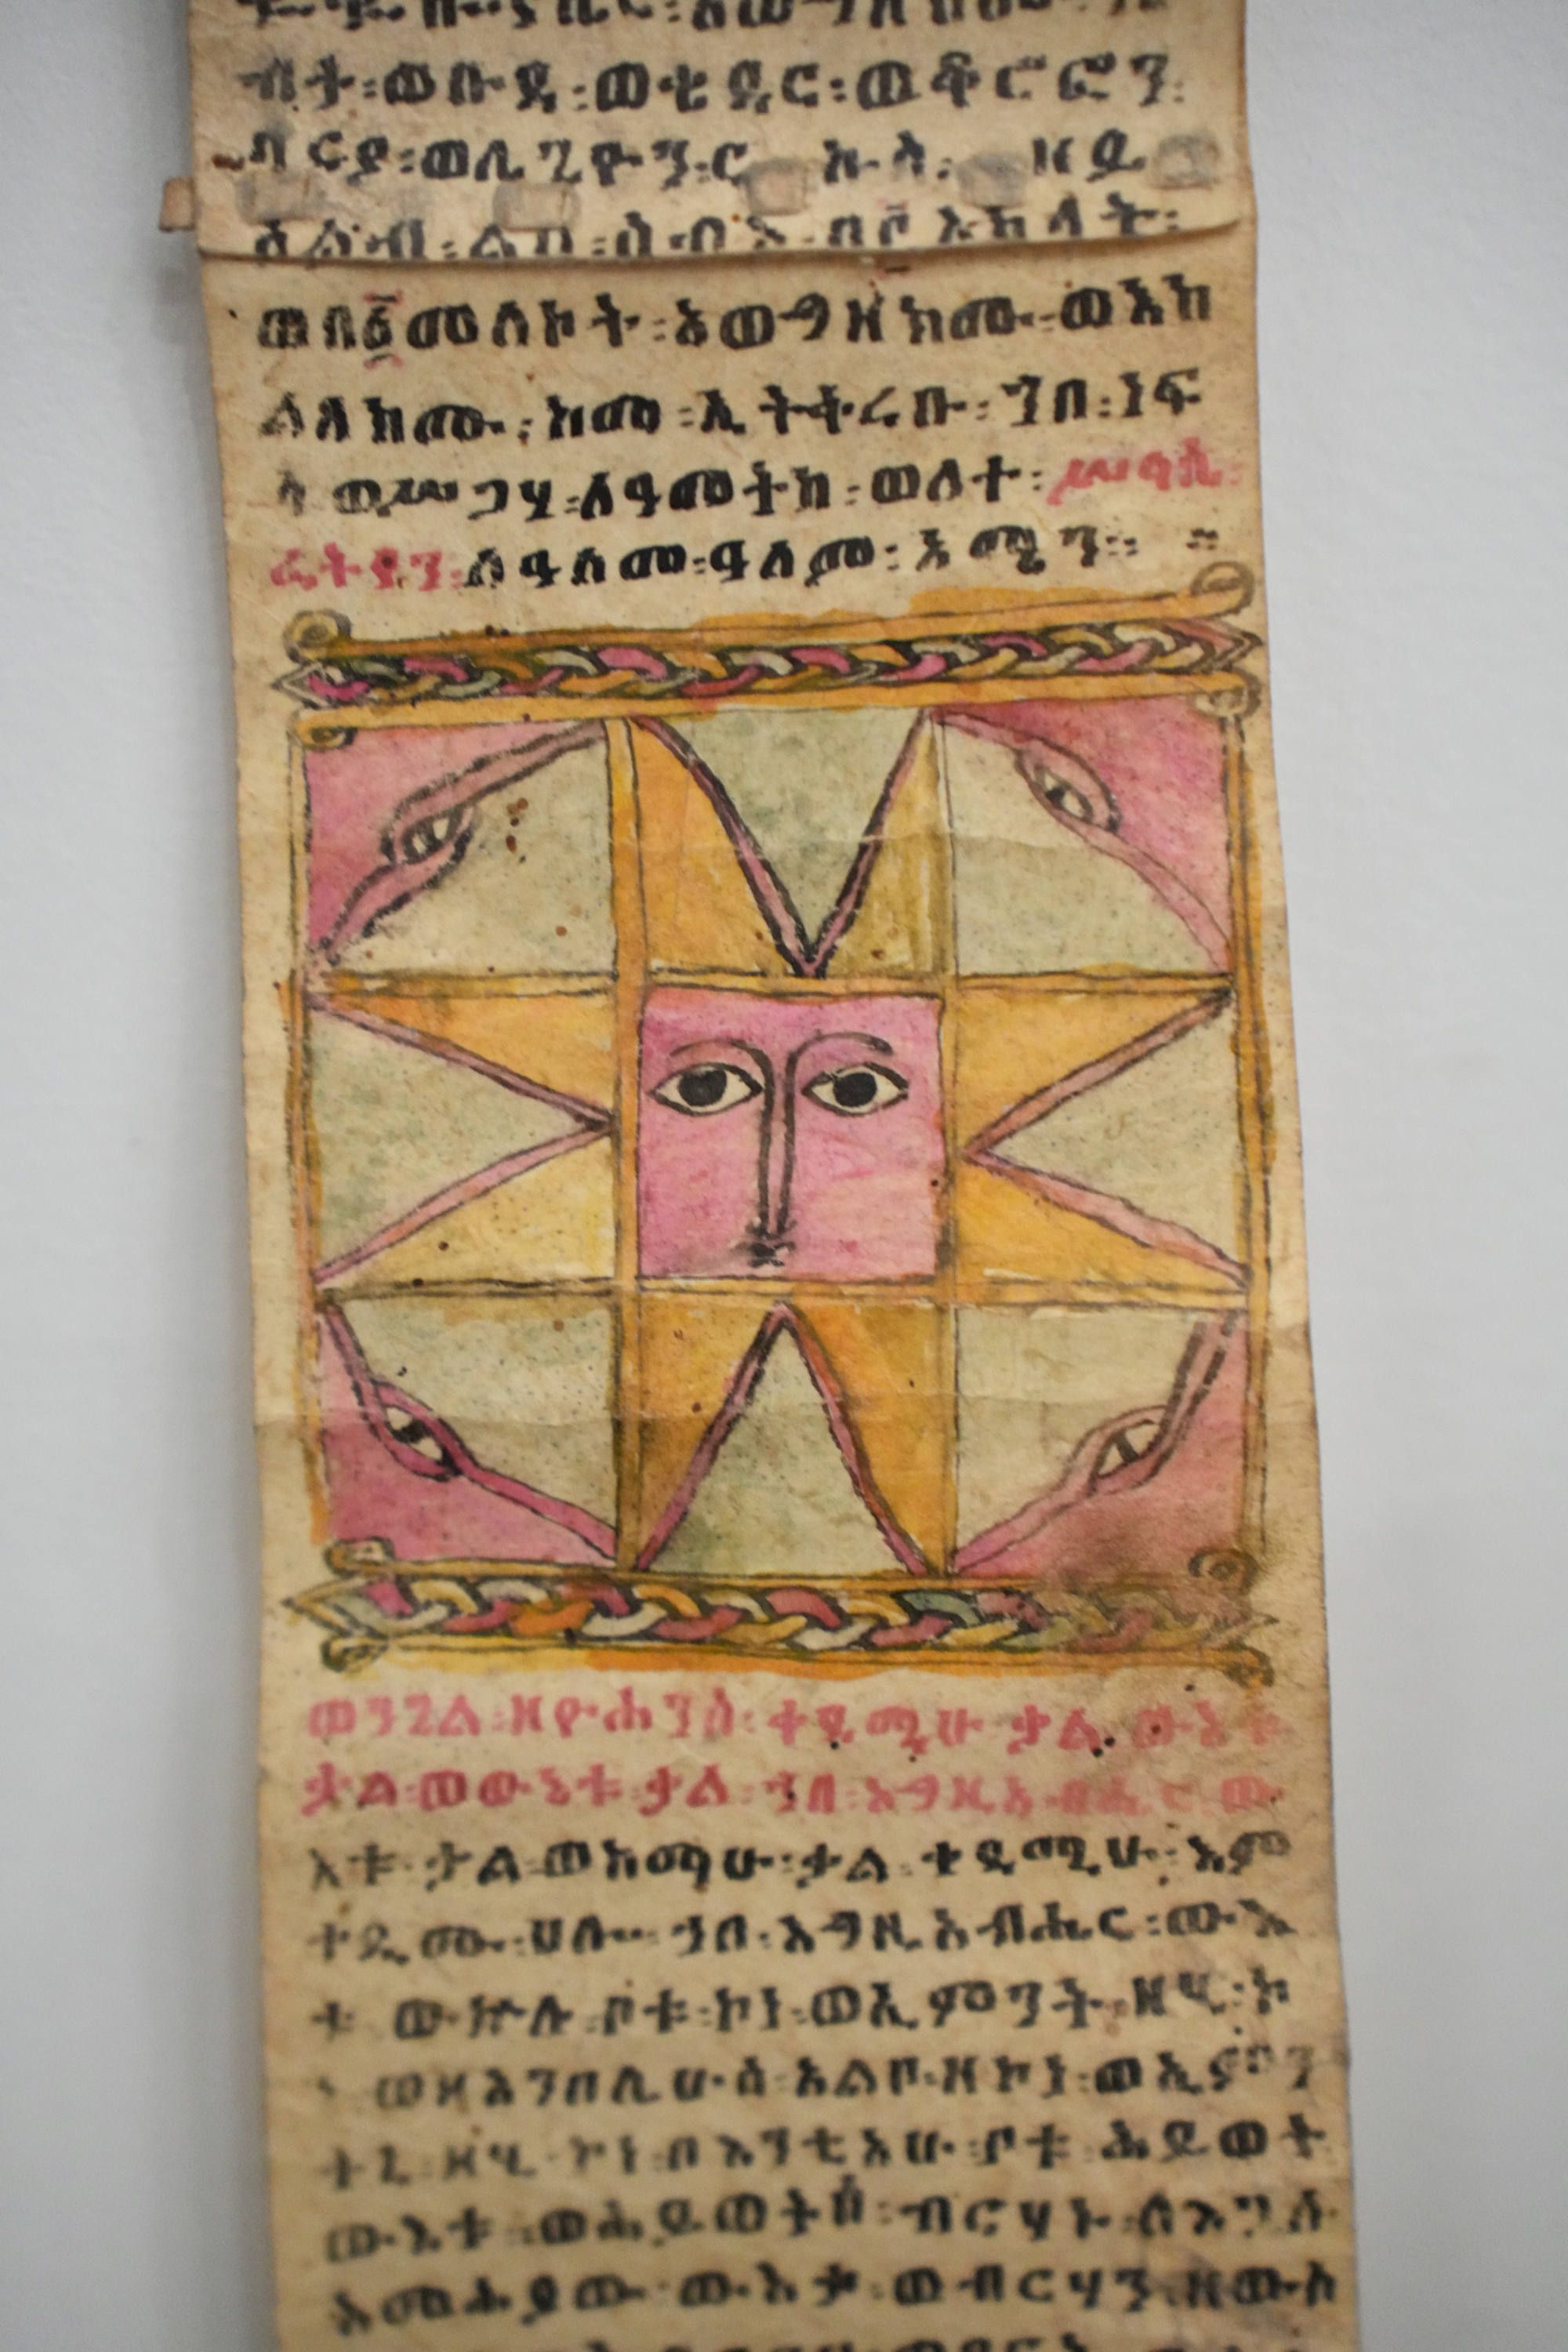 ብት፡ወቡዳ፡ወቂዳር፡
ባርያ፡ወሊጌዮን፡
ወበ፩መለኮት፡አወግዘክሙ፡ወእከ
ልለክሙ፡ከመ፡ኢትቅረቡ፡ኀበ፡ነፍ
ሳ ወሥጋሃ፡ለዓመትከ፡ወለተ፡
ለዓለመ፡ዓለም፡አሜን።
ወንጌል፡ዘዮሐንስ፡ቀዳሚሁ ቃል ውእቱ
ቃል፡ወውእቱ፡ቃል፡ኀበ፡እግዚአብሔር ው
እቱ ቃል፡ወከማሁ፡ቃል፡ቀዳሚሁ፡እም
ቀዲሙ፡ሀሎ፡ኀበ፡እግዚአብሔር፡ውእ
ቱ ወኵሉ፡ቦቱ፡ኮነ፡ወኢምንት ዘሂ፡ኮ
ወዘእንበሌሁሰ፡አልቦ፡ዘኮነ፡ወኢምን
ትኒ፡ዘሂ ኮነ፡በእንቲአሁ፡ቦቱ ሕይወት
ውእቱ፡ወሕይወትሰ፡ብርሃኑ፡ለእጓለ
እመሕያው ውእቱ ወብርሃን ዘውስ